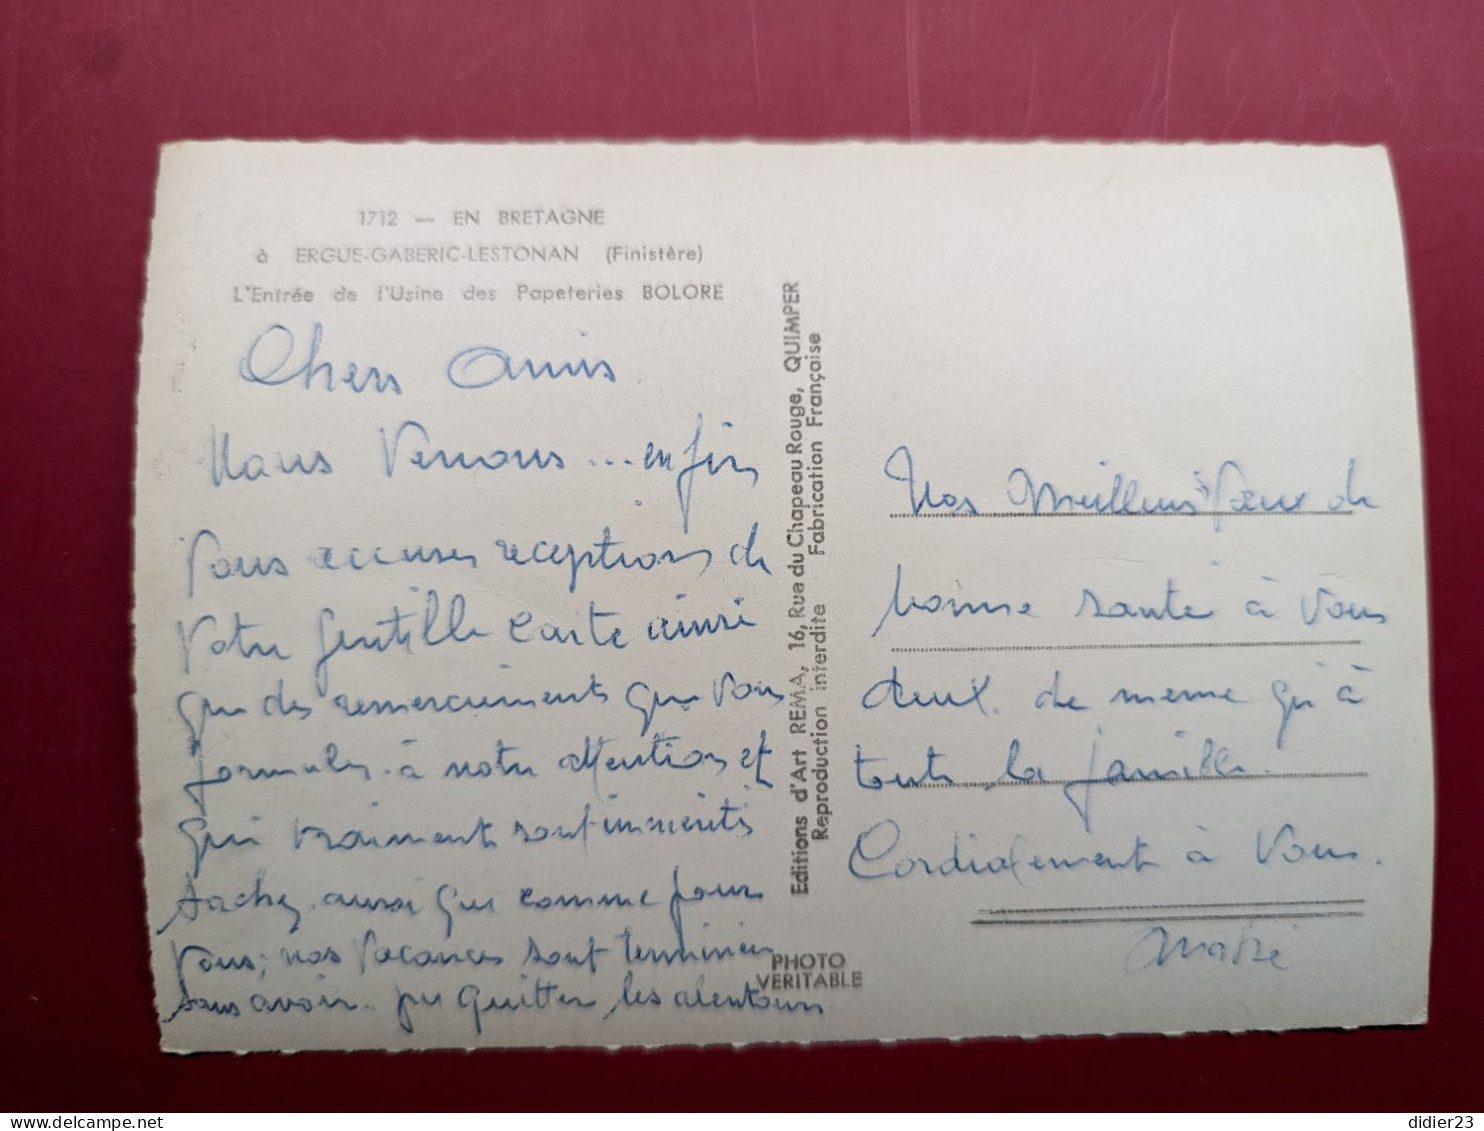 1712 — EN BRETAGNE
à ERGUE-GABERIC-LESTONAN (Finistère)
L'Entrée de l'Usine des Papeteries BOLORE
Chers Amis
Nous Venons ... enfin
Vous accuser receptions de
Votre gentille Carte ainsi
que des remerciements que Vous
formulez à notre attention et
qui vraiment sont immérités
Sachez aussi que comme pour
Vous; nos Vacances sont terminées
sans avoir pu quitter les alentours
Editions d'Art REMA, 16, Rue du Chapeau Rouge, QUIMPER
Reproduction interdite Fabrication Française
PHOTO
VERITABLE
Nos Meilleurs Voeux de
bonne santé à Vous
deux. de meme qu'à
toute la famille.
Cordialement à Vous.
André
didier23